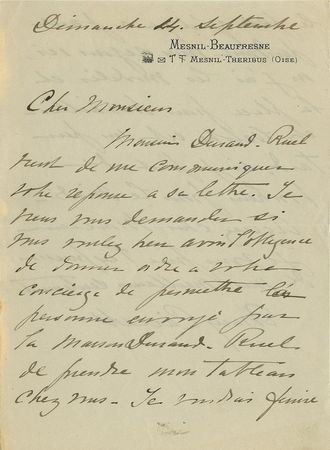 Dimanche 24 Septembre
MESNIL-BEAUFRESNE
MESNIL-THERIBUS (OISE)
Cher Monsieur
Monsieur Durand-Ruel
vient de me communiquer
votre reponse a sa lettre. Je
veux vous demander si
vous voulez bien avoir l'obligence
de donner ordre a votre
concierge de permettre
personne envoyé par
la Maison Durand-Ruel
de prendre mon tableau
chez vous. Je voudrais faire